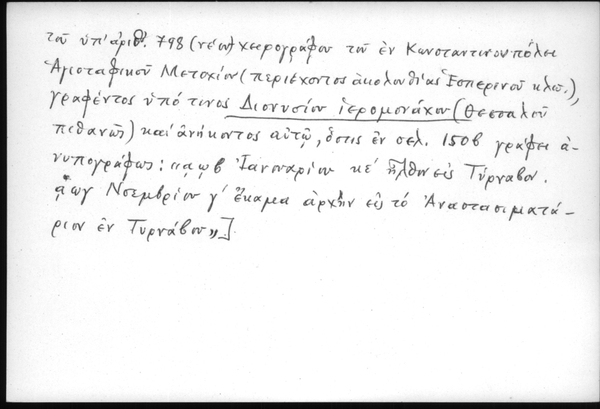 τοῦ ὑπ' ἀριθ. 798 (νέου) χειρογράφου τοῦ ἐν Κωνσταντινουπόλει
Ἁγιοταφικοῦ Μετοχίου (περιέχοντος ἀκολουθίας Ἑσπερινοῦ κλω.),
γραφέντος ὑπό τινος Διονυσίου ἱερομονάχου (Θεσσαλοῦ
πιθανῶς) καὶ ἀνήκοντος αὐτῷ, ὅστις ἐν σελ. 150β γράφει ἀ-
νυπογράφως: "͵αωβ Ἰανουαρίου κε΄ ἦλθον εἰς Τύρναβον.
͵αωγ Νοεμβρίου γ΄ ἔκαμα ἀρχὴν εἰς τὸ Ἀναστασιματά-
ριον ἐν Τυρνάβου"]